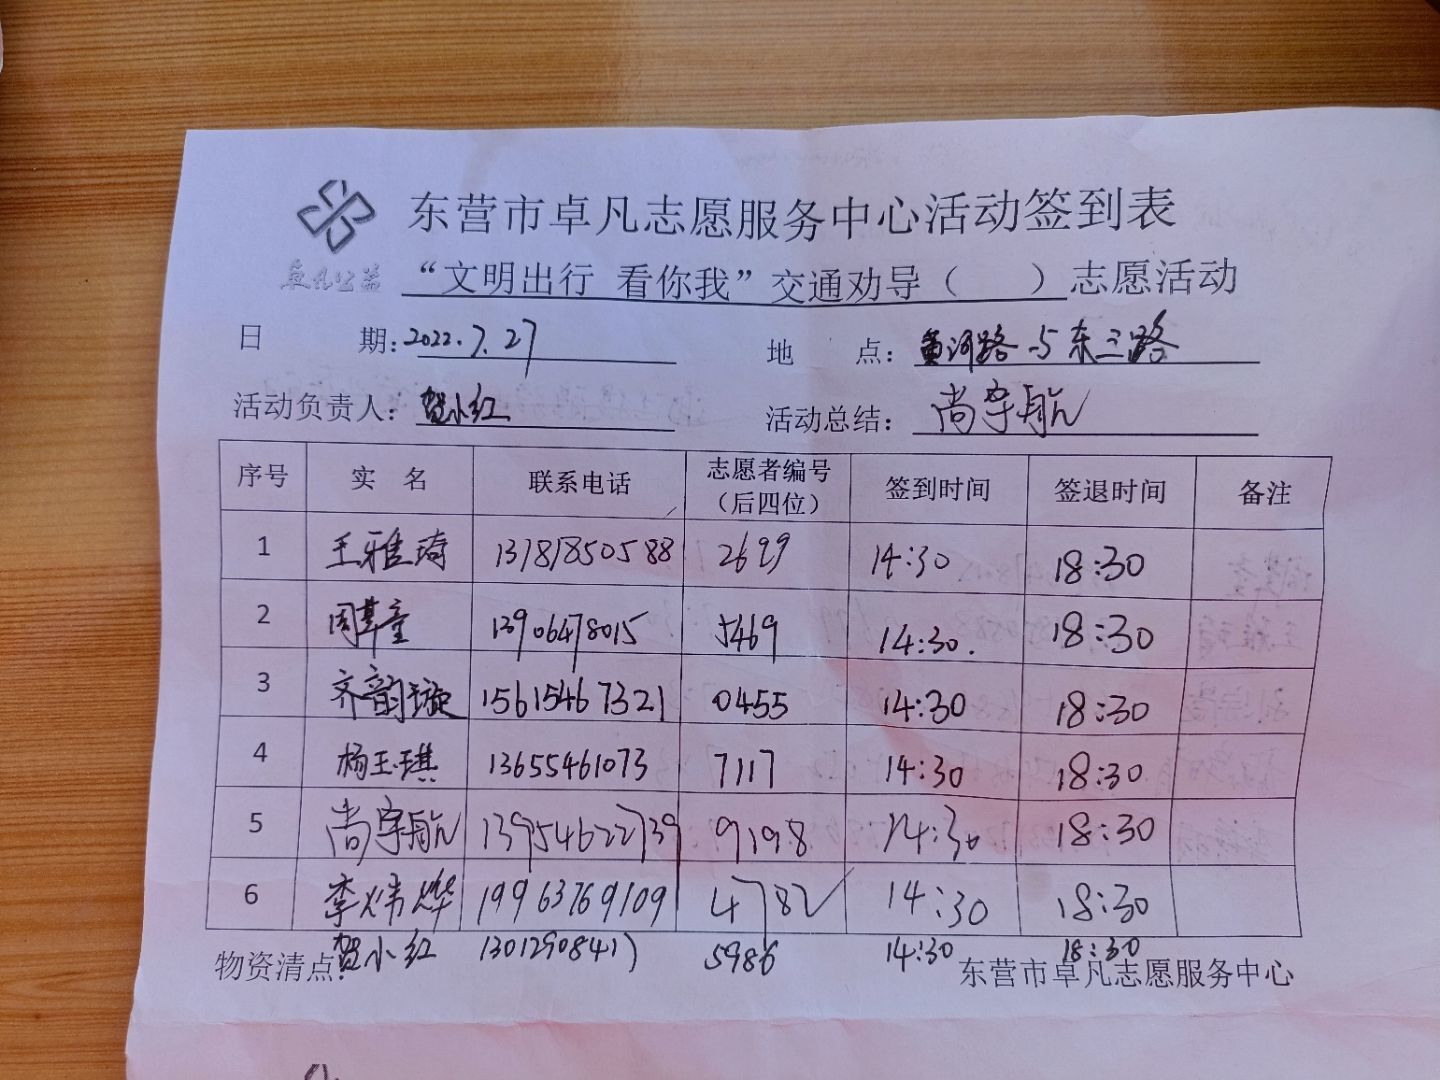 东营市卓凡志愿服务中心活动签到表
卓凡公益
“文明出行 看你我”交通劝导（ ）志愿活动
日 期：2022.7.27 地 点：黄河路与东三路
活动负责人：贺小红 活动总结：尚宇航
序号 实 名 联系电话 志愿者编号（后四位） 签到时间 签退时间 备注
1 王雅琦 13181850588 2699 14:30 18:30
2 周 童 13906478015 5469 14:30. 18:30
3 齐韵璇 15615467321 0455 14:30 18:30
4 杨玉琪 13655461073 7117 14:30 18:30
5 尚宇航 13954622739 9198 14:30 18:30
6 李炜烨 19963769109 4782 14:30 18:30
贺小红 13012908417 5986 14:30 18:30
物资清点： 东营市卓凡志愿服务中心